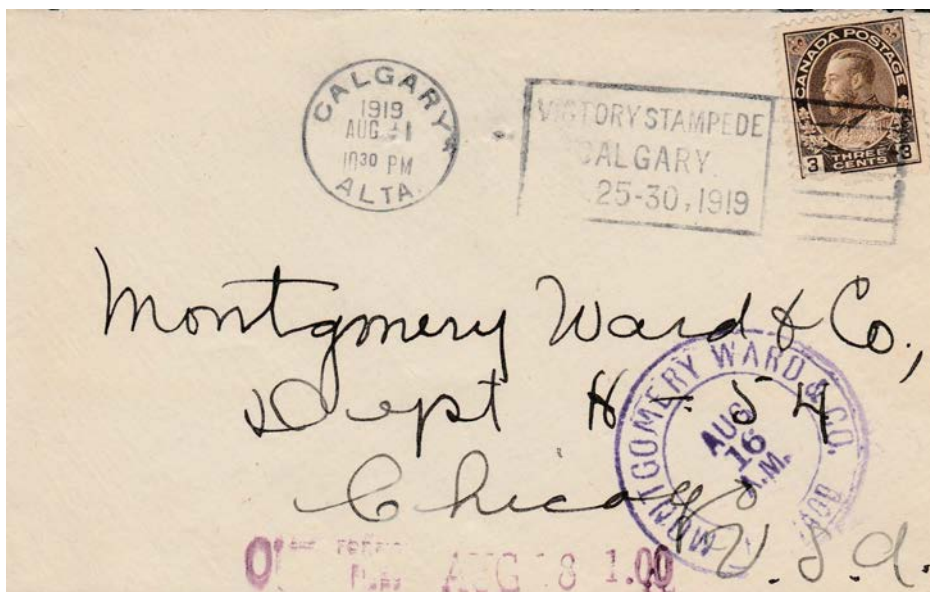 CALGARY
1919
AUG 11
10 30 PM
ALTA.
VICTORY STAMPEDE
CALGARY.
25-30, 1919
CANADA POSTAGE
3 THREE CENTS 3
Montgomery Ward & Co.,
Dept H-54
Chicago
U.S.A.
MONTGOMERY WARD & CO.
AUG
16
A.M.
AUG 18 1.00